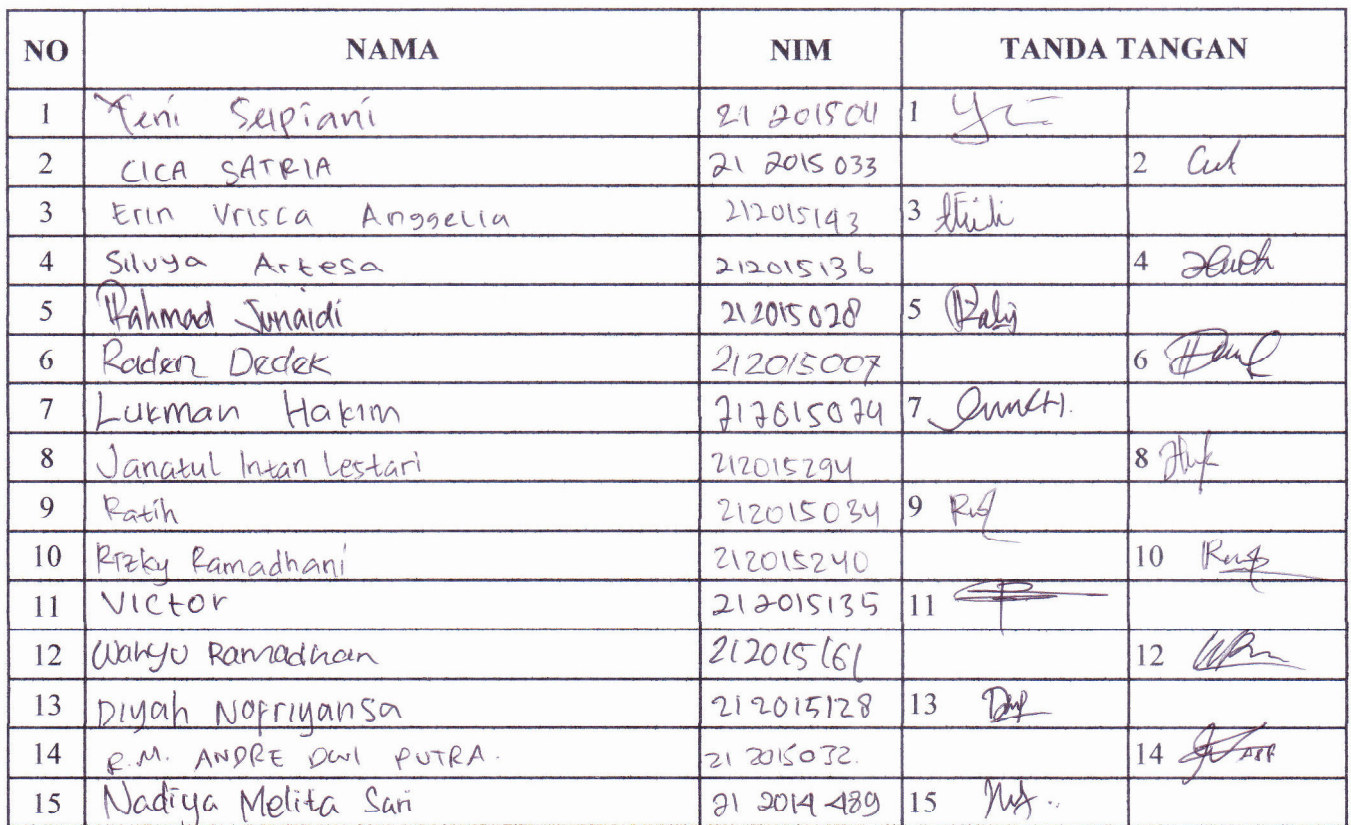 NO NAMA NIM TANDA TANGAN
1 Yeni Sepiani 1
2 CICA SATRIA 21 2015 033 2
3 Erin Vrisca Anggelia 212015143 3
4 Silvya Artesa 212015136 4
5 Rahmad Junaidi 212015028 5
6 Raden Dedek 212015007 6
7 Lukman Hakim 212015024 7
8 Janatul Intan Lestari 212015294 8
9 Ratih 212015034 9
10 Rizky Ramadhani 212015240 10
11 Victor 212015135 11
12 Wahyu Ramadhan 212015161 12
13 Diyah Nofriyansa 212015128 13
14 R.M. ANDRE DWI PUTRA. 21 2015032. 14
15 Nadiya Melita Sari 21 2014 489 15